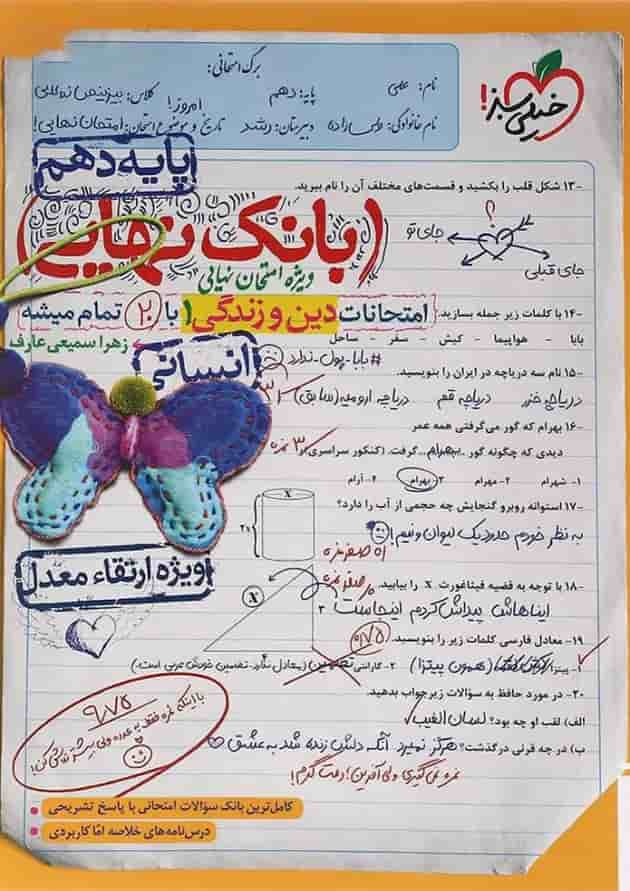 خیلی سبز!
برگ امتحانی:
نام: علی
پایه: دهم
کلاس:
نام خانوادگی:
دبیرستان: رشد
تاریخ و موضوع امتحان: امروز! امتحان نهایی!
پایه دهم
۱۳- شکل قلب را بکشید و قسمت‌های مختلف آن را نام ببرید.
بانک نهایی
ویژه امتحان نهایی
؟
جای تو
جای قبلی
امتحانات دین و زندگی ۱ با ۲۰ تمام میشه
۱۴- با کلمات زیر جمله بسازید.
بابا - هواپیما - کیش - سفر - ساحل
زهرا سمیعی عارف
انسانی
#بابا-پول-ندارد
۱۵- نام سه دریاچه در ایران را بنویسید.
دریاچه خزر دریاچه قم دریاچه ارومیه (سابق)
۱۶- بهرام که گور می‌گرفتی همه عمر
دیدی که چگونه گور ..بهرام.. گرفت. (کنکور سراسری
۳ نمره
۱- شهرام ۲- مهرام ۳- بهرام ۴- آرام
۱۷- استوانه روبرو گنجایش چه حجمی از آب را دارد؟
X
۲x
به نظر خودم حدود یک لیوان و نیم!
صفر نمره
۱۸- با توجه به قضیه فیثاغورث X را بیابید.
صفر نمره
ایناهاش پیداش کردم اینجاست
X
۳
ویژه ارتقاء معدل
۱۹- معادل فارسی کلمات زیر را بنویسید.
۰/۷۵
۱- پیتزا (همون پیتزا) ۲- گارانتی تضمین (معادل نگذار. تضمین خودش عربی است.)
۲۰- در مورد حافظ به سؤالات زیر جواب بدهید.
الف) لقب او چه بود؟ لسان الغیب
ب) در چه قرنی درگذشت؟ هرگز نمیرد آنکه دلش زنده شد به عشق
نمره نمی‌گیری ولی آفرین! دمت گرم!
۹/۷۵
با اینکه نمره فقط یه عدده ولی بیشتر تلاش کن!
کامل‌ترین بانک سؤالات امتحانی با پاسخ تشریحی
درس‌نامه‌های خلاصه اما کاربردی